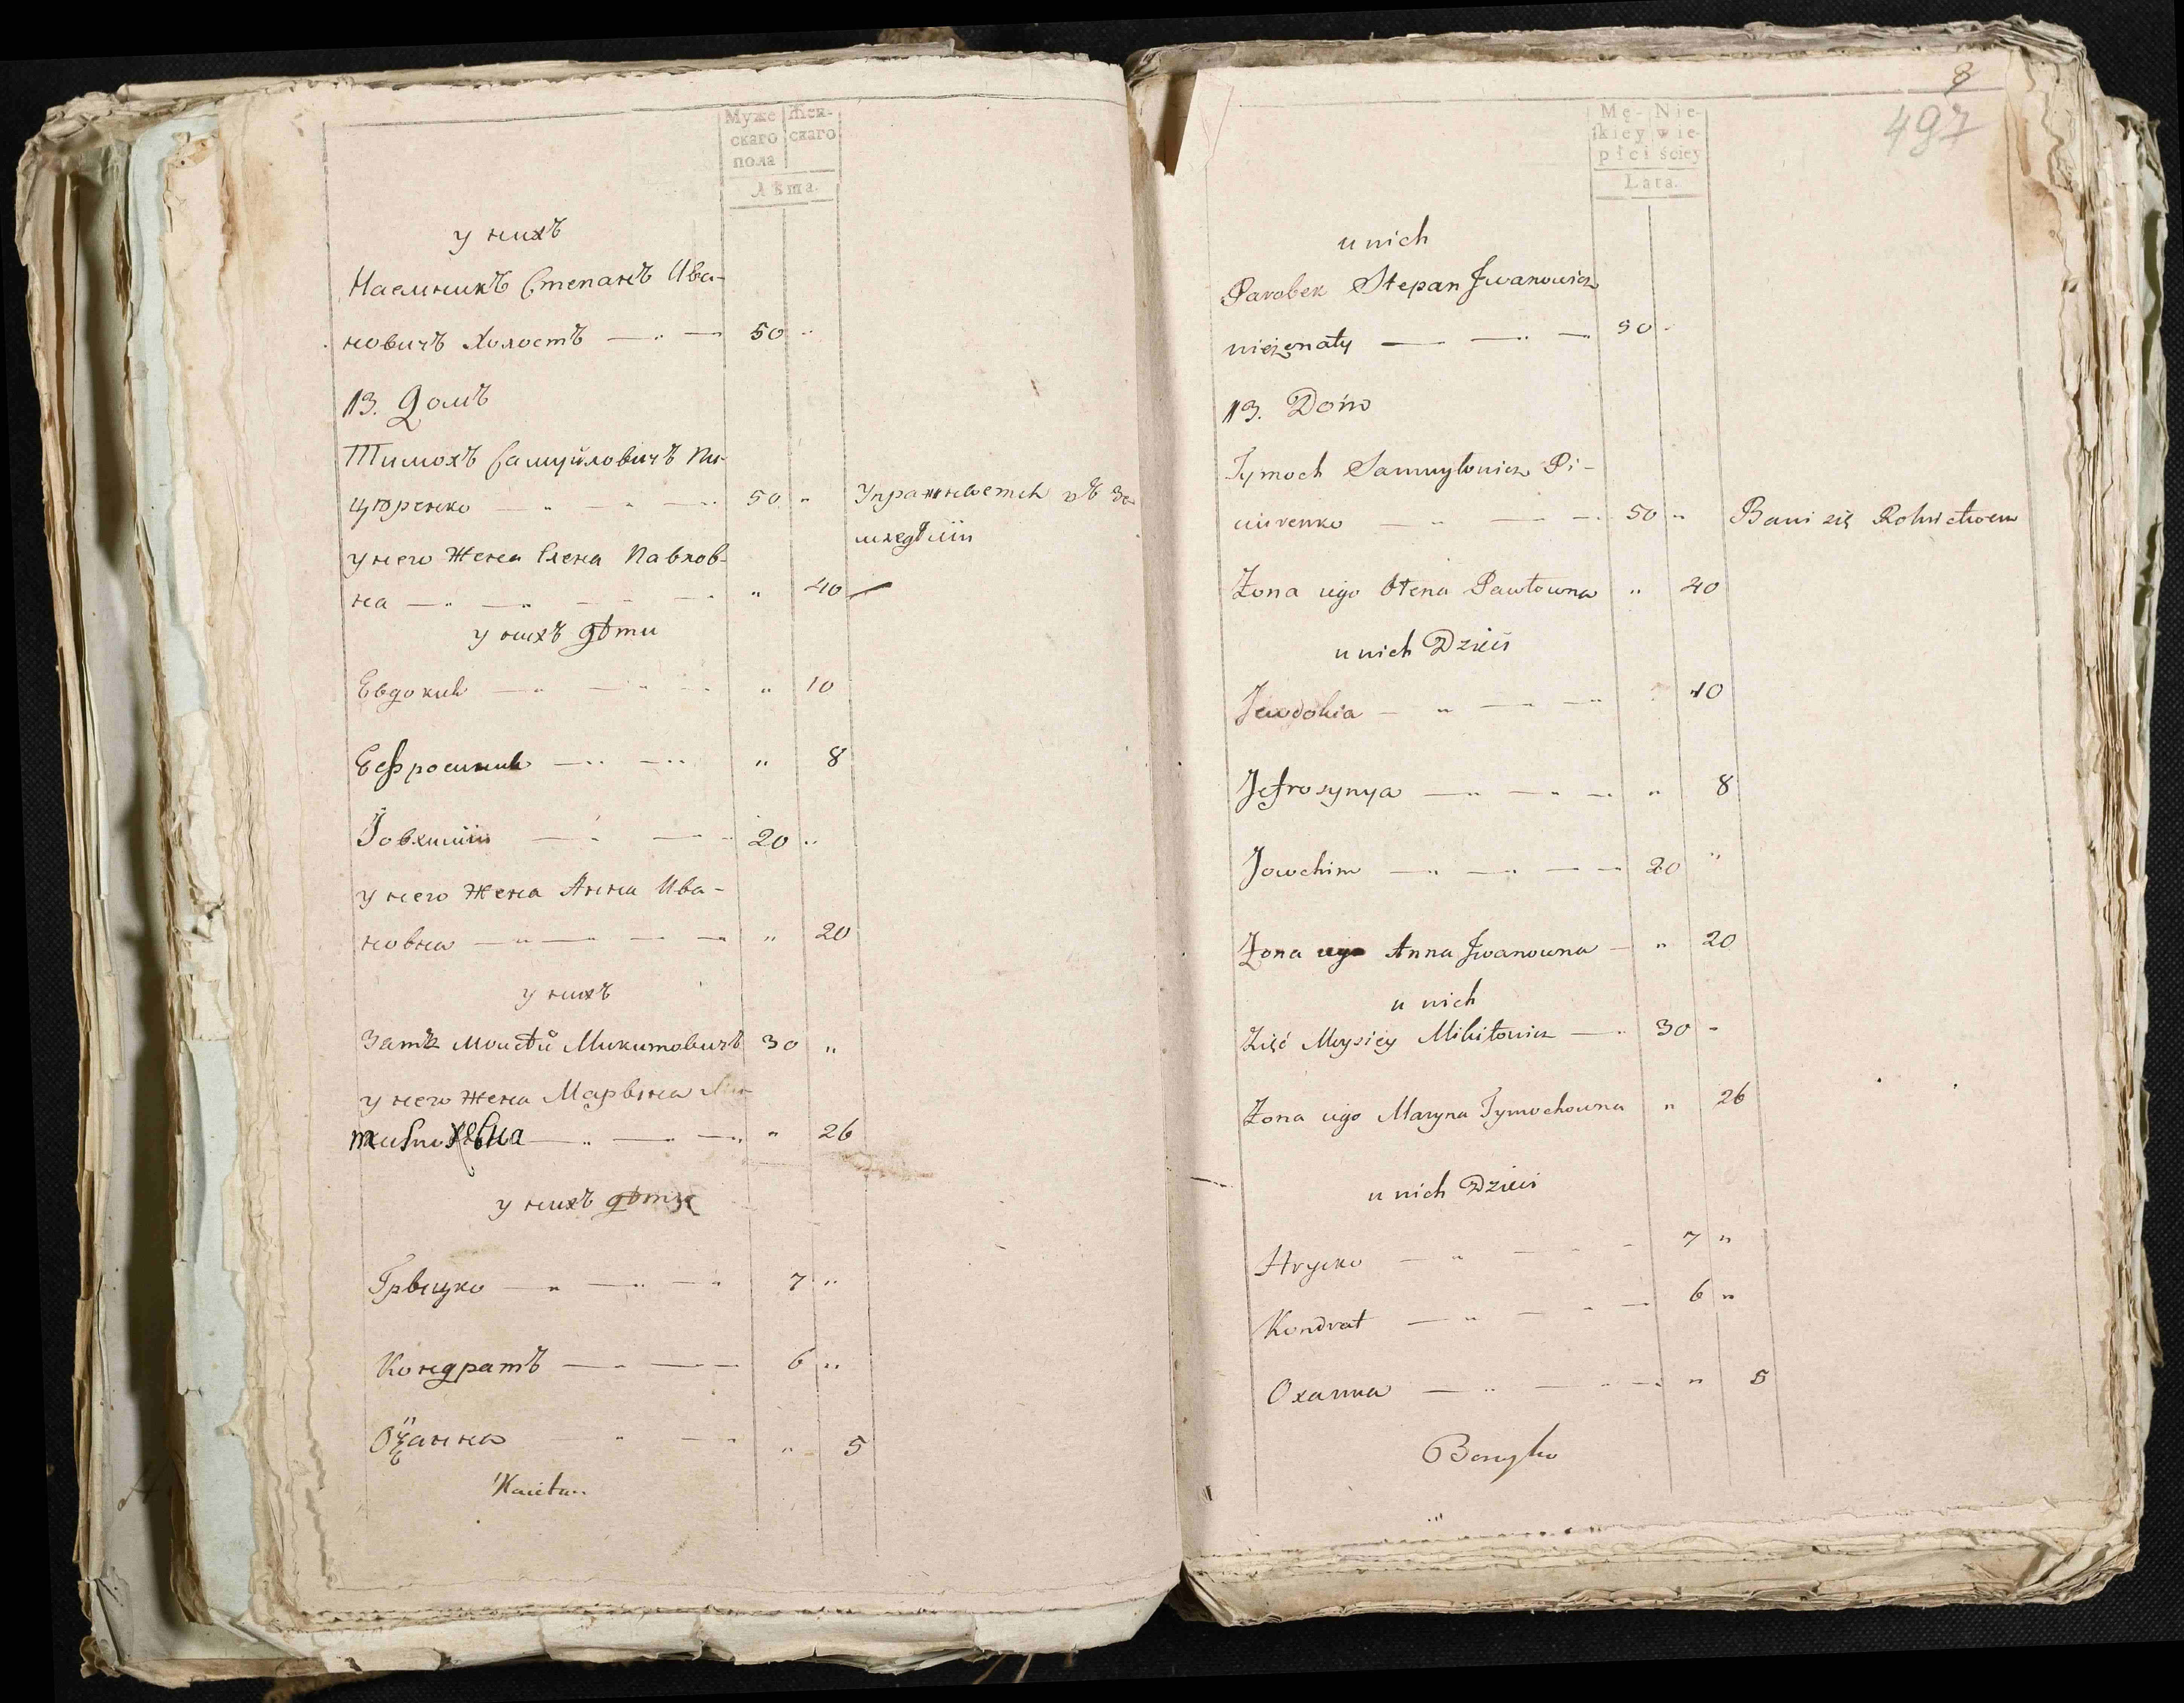 Муже Жен-
скаго скаго
пола
Лѣта.
у нихъ
Наемникъ Степанъ Ива-
новичъ холостъ 50 "
13. Домъ
Тимохъ Самуйловичъ Пи-
цюренко 50 " Упражняется въ зе-
мледѣліи
у него жена Елена Павлов-
на " 40
у нихъ дѣти
Евдокия " 10
Ефросиния " 8
Іовхимій 20 "
у него жена Анна Ива-
новна " 20
у нихъ
Зять Моисѣй Микитовичъ 30 "
у него жена Марына
" 26
у нихъ дѣти
Грыцко 7 "
Кондратъ 6 "
О҆ѯанна " 5
8
497
Mę- Nie-
skiey wie-
płci ściey
Lata.
u nich
Parobek Stepan Jwanowicz
nieżonaty 50 "
13. Dom
Tymoch Samuyłowicz Pi-
ciurenko 50 " Bawi się Rolnictwem
Żona iego Ołena Pawłowna " 40
u nich Dzieci
Jewdokia 10
Jefrosynya " 8
Jowchim 20 "
Żona iego Anna Jwanowna " 20
u nich
Zięć Moysiey Mikitowicz 30 "
Żona iego Maryna Tymochowna " 26
u nich Dzieci
Hrycko 7 "
Kondrat 6 "
Oxanna " 5